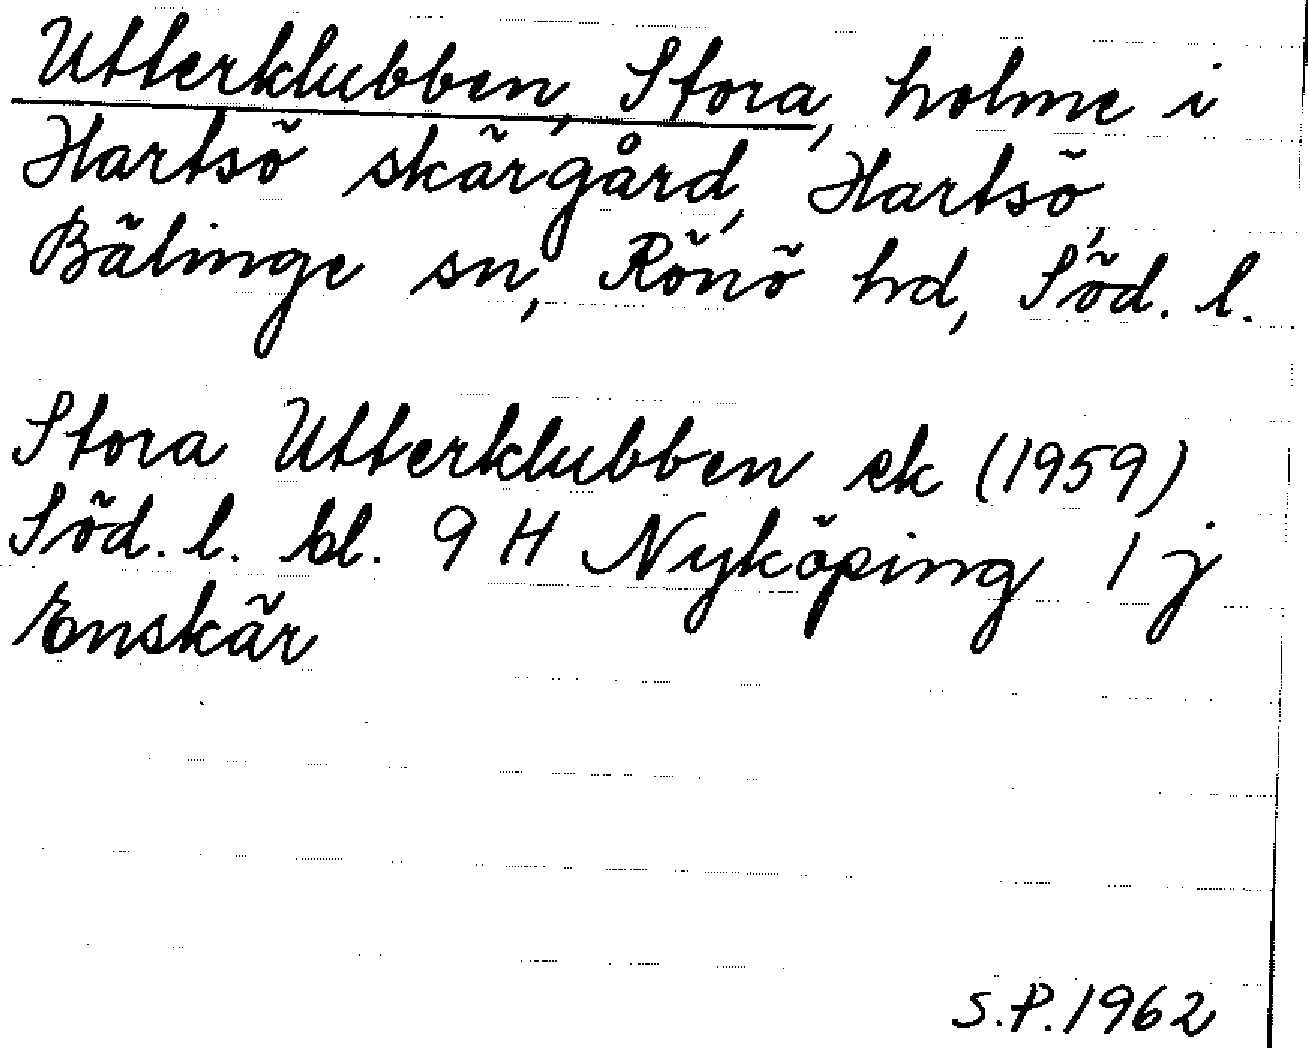 Utterklubben, Stora, holme i
Hartsö skärgård, Hartsö,
Bälinge sn, Rönö hd, Söd. l.
Stora Utterklubben ek (1959)
Söd. l. bl. 9 H Nyköping 1 j
Enskär
S.P. 1962